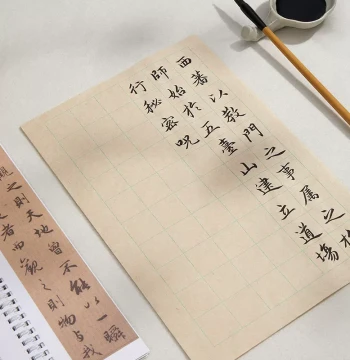 西著以教門之事属之
師始於五臺山建立道場
行秘密呪
之則天地曾不能以一瞬
者而觀之則物与我